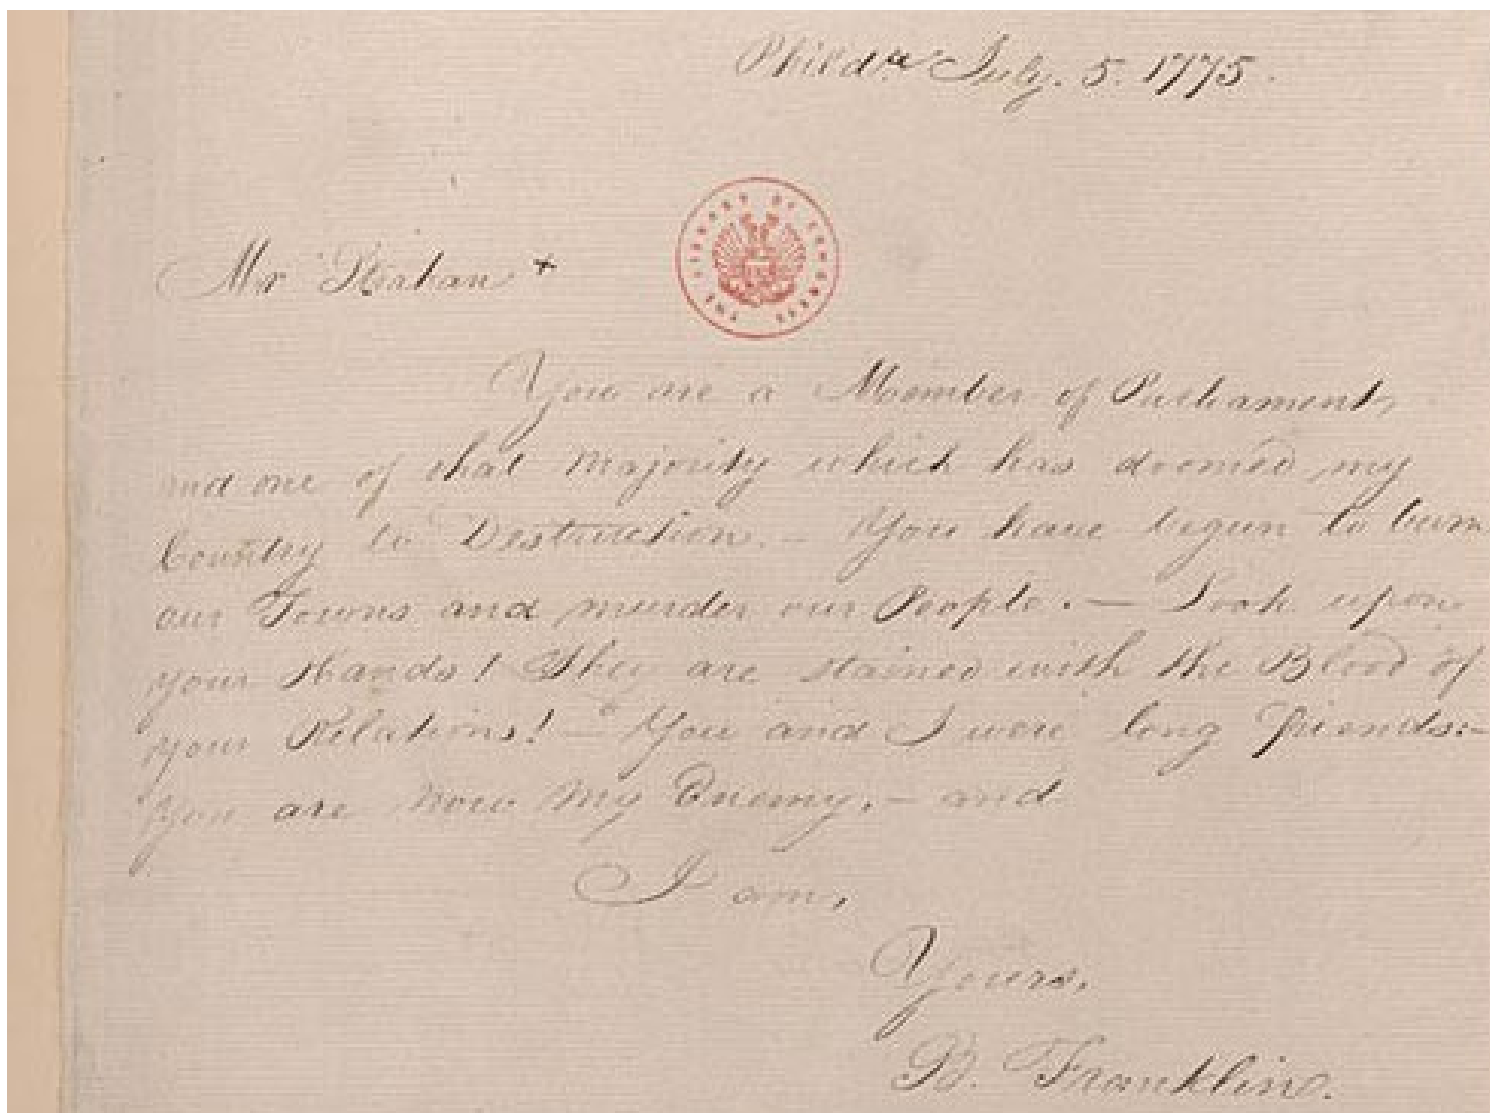 Philda July. 5. 1775.
Mr Strahan +
THE LIBRARY OF CONGRESS
You are a Member of Parliament,
and one of that Majority which has doomed my
Country to Destruction. – You have begun to burn
our Towns and murder our People. — Look upon
your Hands! They are stained with the Blood of
your Relations! – You and I were long Friends:–
You are now my Enemy, – and
I am,
Yours,
B. Franklin.